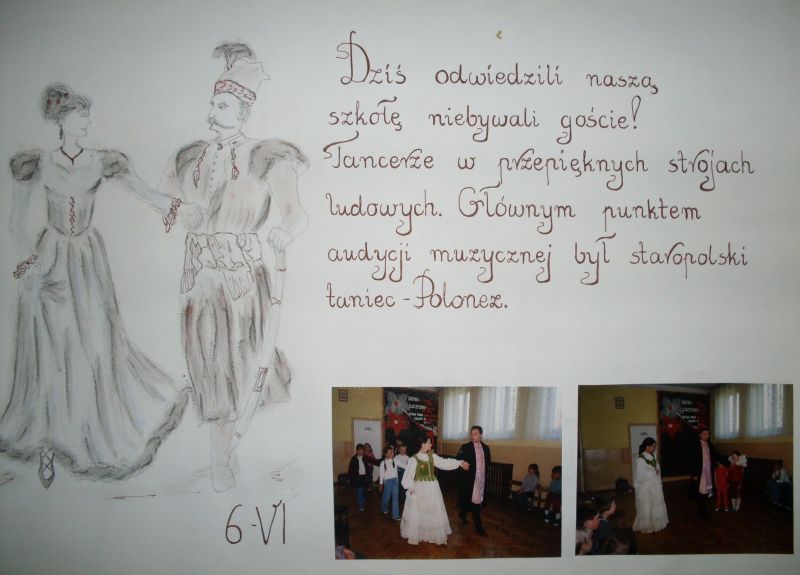 Dziś odwiedzili naszą
szkołę niebywali goście!
Tancerze w przepięknych strojach
ludowych. Głównym punktem
audycji muzycznej był staropolski
taniec - Polonez.
6-VI